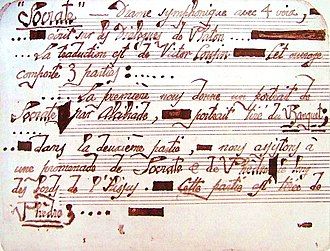 "Socrate" — Drame symphonique avec 4 voix,
écrit sur des Dialogues de Platon
La traduction est de Victor Cousin Cet ouvrage
comporte 3 parties :
La première nous donne un portrait de
Socrate par Alcibiade, portrait tiré du Banquet ;
dans la deuxième partie, nous assistons à
une promenade de Socrate & de Phèdre le long
des bords de l'Ilissus Cette partie est tirée de
Phèdre ;